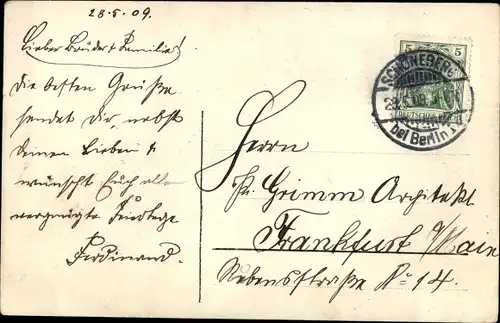 28.5.09.
Lieber Bruder & Familie!
Die besten Grüße
sendet Dir, nebst
Deinen Lieben &
wünscht Euch allen
vergnügte Feiertage
Ferdinand.
5 5
SCHÖNEBERG
bei Berlin
DEUTSCHES REICH
Herrn
Grimm Architekt
Frankfurt a/Main
Rebenstraße No 14.